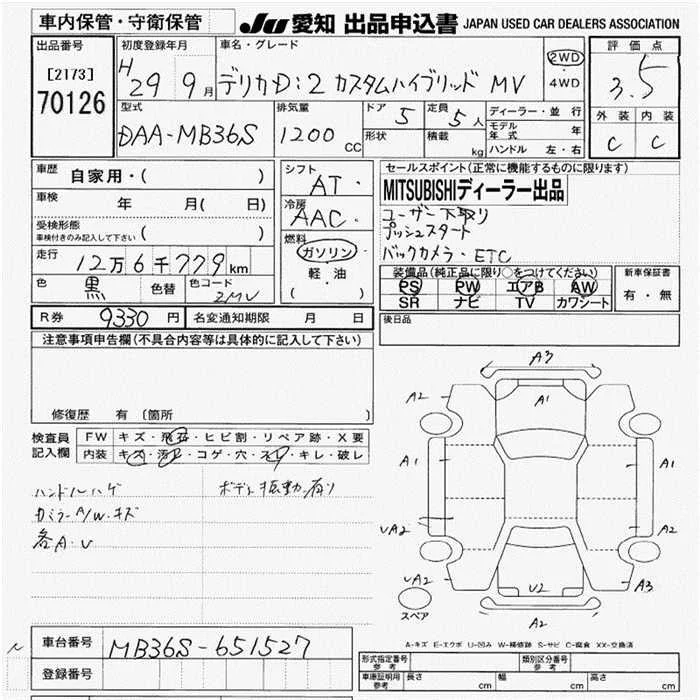 車内保管・守衛保管
JU 愛知 出品申込書 JAPAN USED CAR DEALERS ASSOCIATION
出品番号
[2173]
70126
初度登録年月
H 29 9月
車名・グレード
デリカD:2 カスタムハイブリッド MV
2WD
・
4WD
評価点
3.5
外装 内装
C C
型式
DAA-MB36S
排気量
1200 CC
ドア 5
形状
定員 5人
積載 kg
ディーラー・並行
モデル年式 年
ハンドル 左・右
車歴
自家用・( )
車検 年 月( 日)
受検形態
車検付きのみ記入して下さい( )
走行
12万6千779km
色 黒 色替 色コード ZMV
シフト
AT・
冷房
AAC・
燃料
ガソリン・
軽・油
( )
セールスポイント(正常に機能するものに限ります)
MITSUBISHIディーラー出品
ユーザー下取り
プッシュスタート
バックカメラ・ETC
装備品(純正品に限り○をつけてください)
PS PW エアB AW
SR ナビ TV カワシート
新車保証書
有・無
R券 9330円 名変通知期限 月 日
後日品
注意事項申告欄(不具合内容等は具体的に記入して下さい)
修復歴 有〔箇所 〕
検査員記入欄
FW キズ・飛石・ヒビ割・リペア跡・X要
内装 キズ・汚レ・コゲ・穴・スレ・キレ・破レ
ハンドルハゲ ボディ振動有り
カミラーA/W・キズ
各A・U
A3
A2 A1
A1 A1
UA2 A2
UA2 U2 A3
スペア A2
A-キズ E-エクボ U-凹み W-補修跡 S-サビ C-腐食 XX-交換済
車台番号 MB36S-651527
登録番号
形式指定番号 参考 類別区分番号 参考
車庫証明用 参考 長さ cm 幅 cm 高さ cm